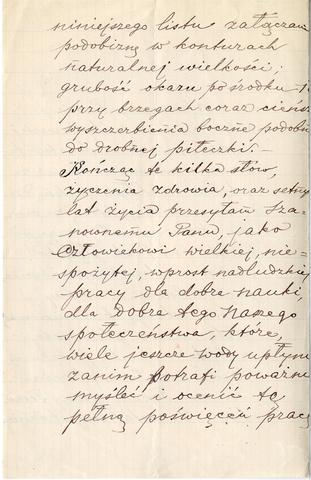 niniejszego listu załączam
podobiznę w konturach
naturalnej wielkości;
grubość okazu pośrodku
przy brzegach coraz cieńsz
wyszczerbienia boczne podobne
do drobnej piłeczki. —
Kończąc te kilka słów,
życzenia zdrowia, oraz setny
lat życia przesyłam Sza-
nownemu Panu, jako
człowiekowi wielkiej, nie-
spożytej, wprost nadludzkiej
pracy dla dobra nauki,
dla dobra tego naszego
społeczeństwa, które,
wiele jeszcze wody upłynie
zanim potrafi poważnie
myśleć i ocenić tę
pełną poświęceń pracę